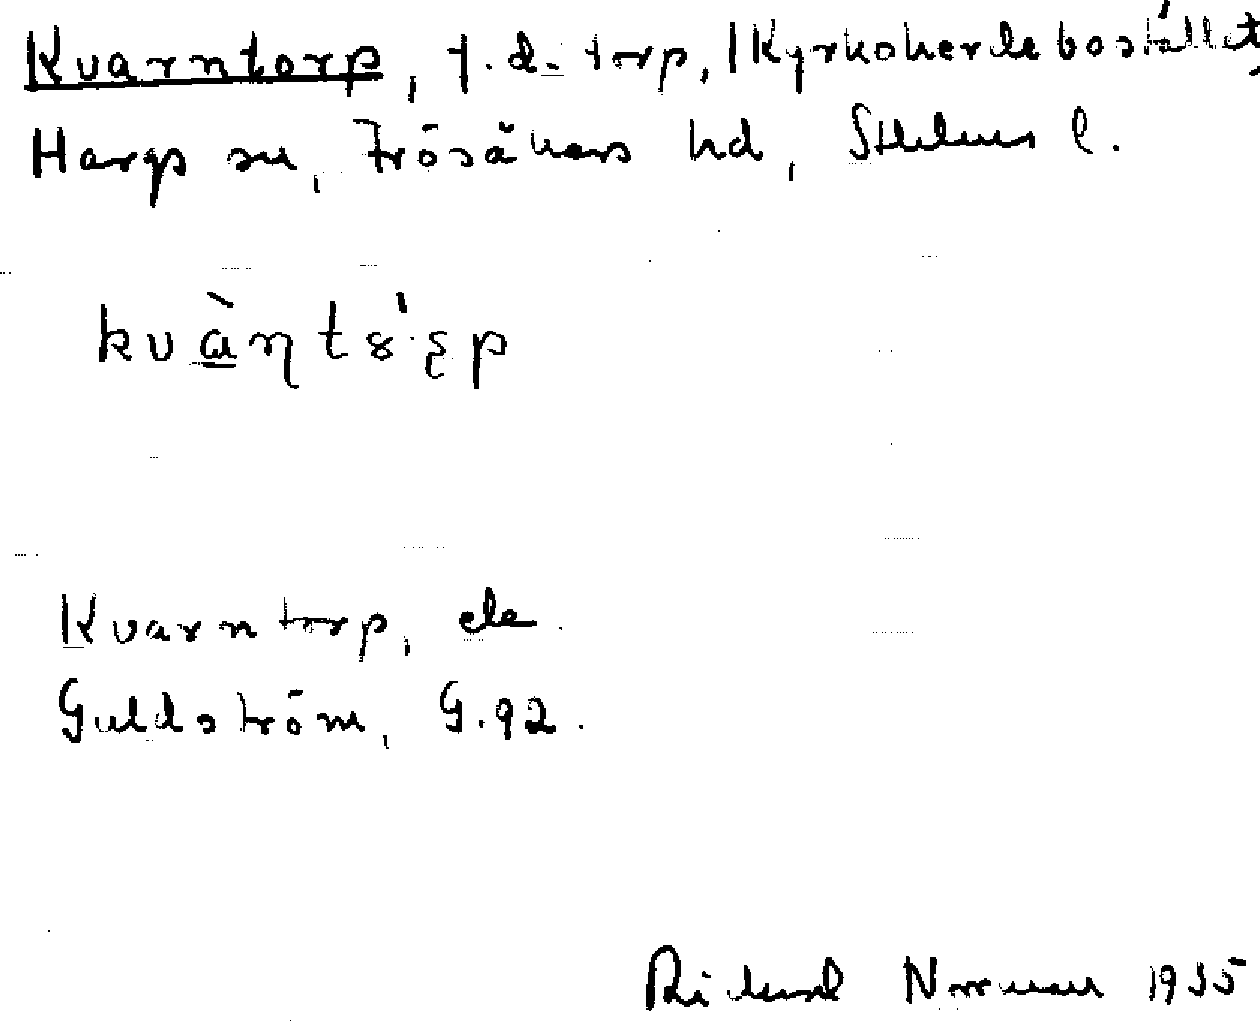 Kvarntorp, f.d. torp, Kyrkoherdebostället,
Hargs sn, Frösåkers hd, Sthlms l.
Kvarntorp, ele
Guldström, G.92.
Rickard Norrman 1935